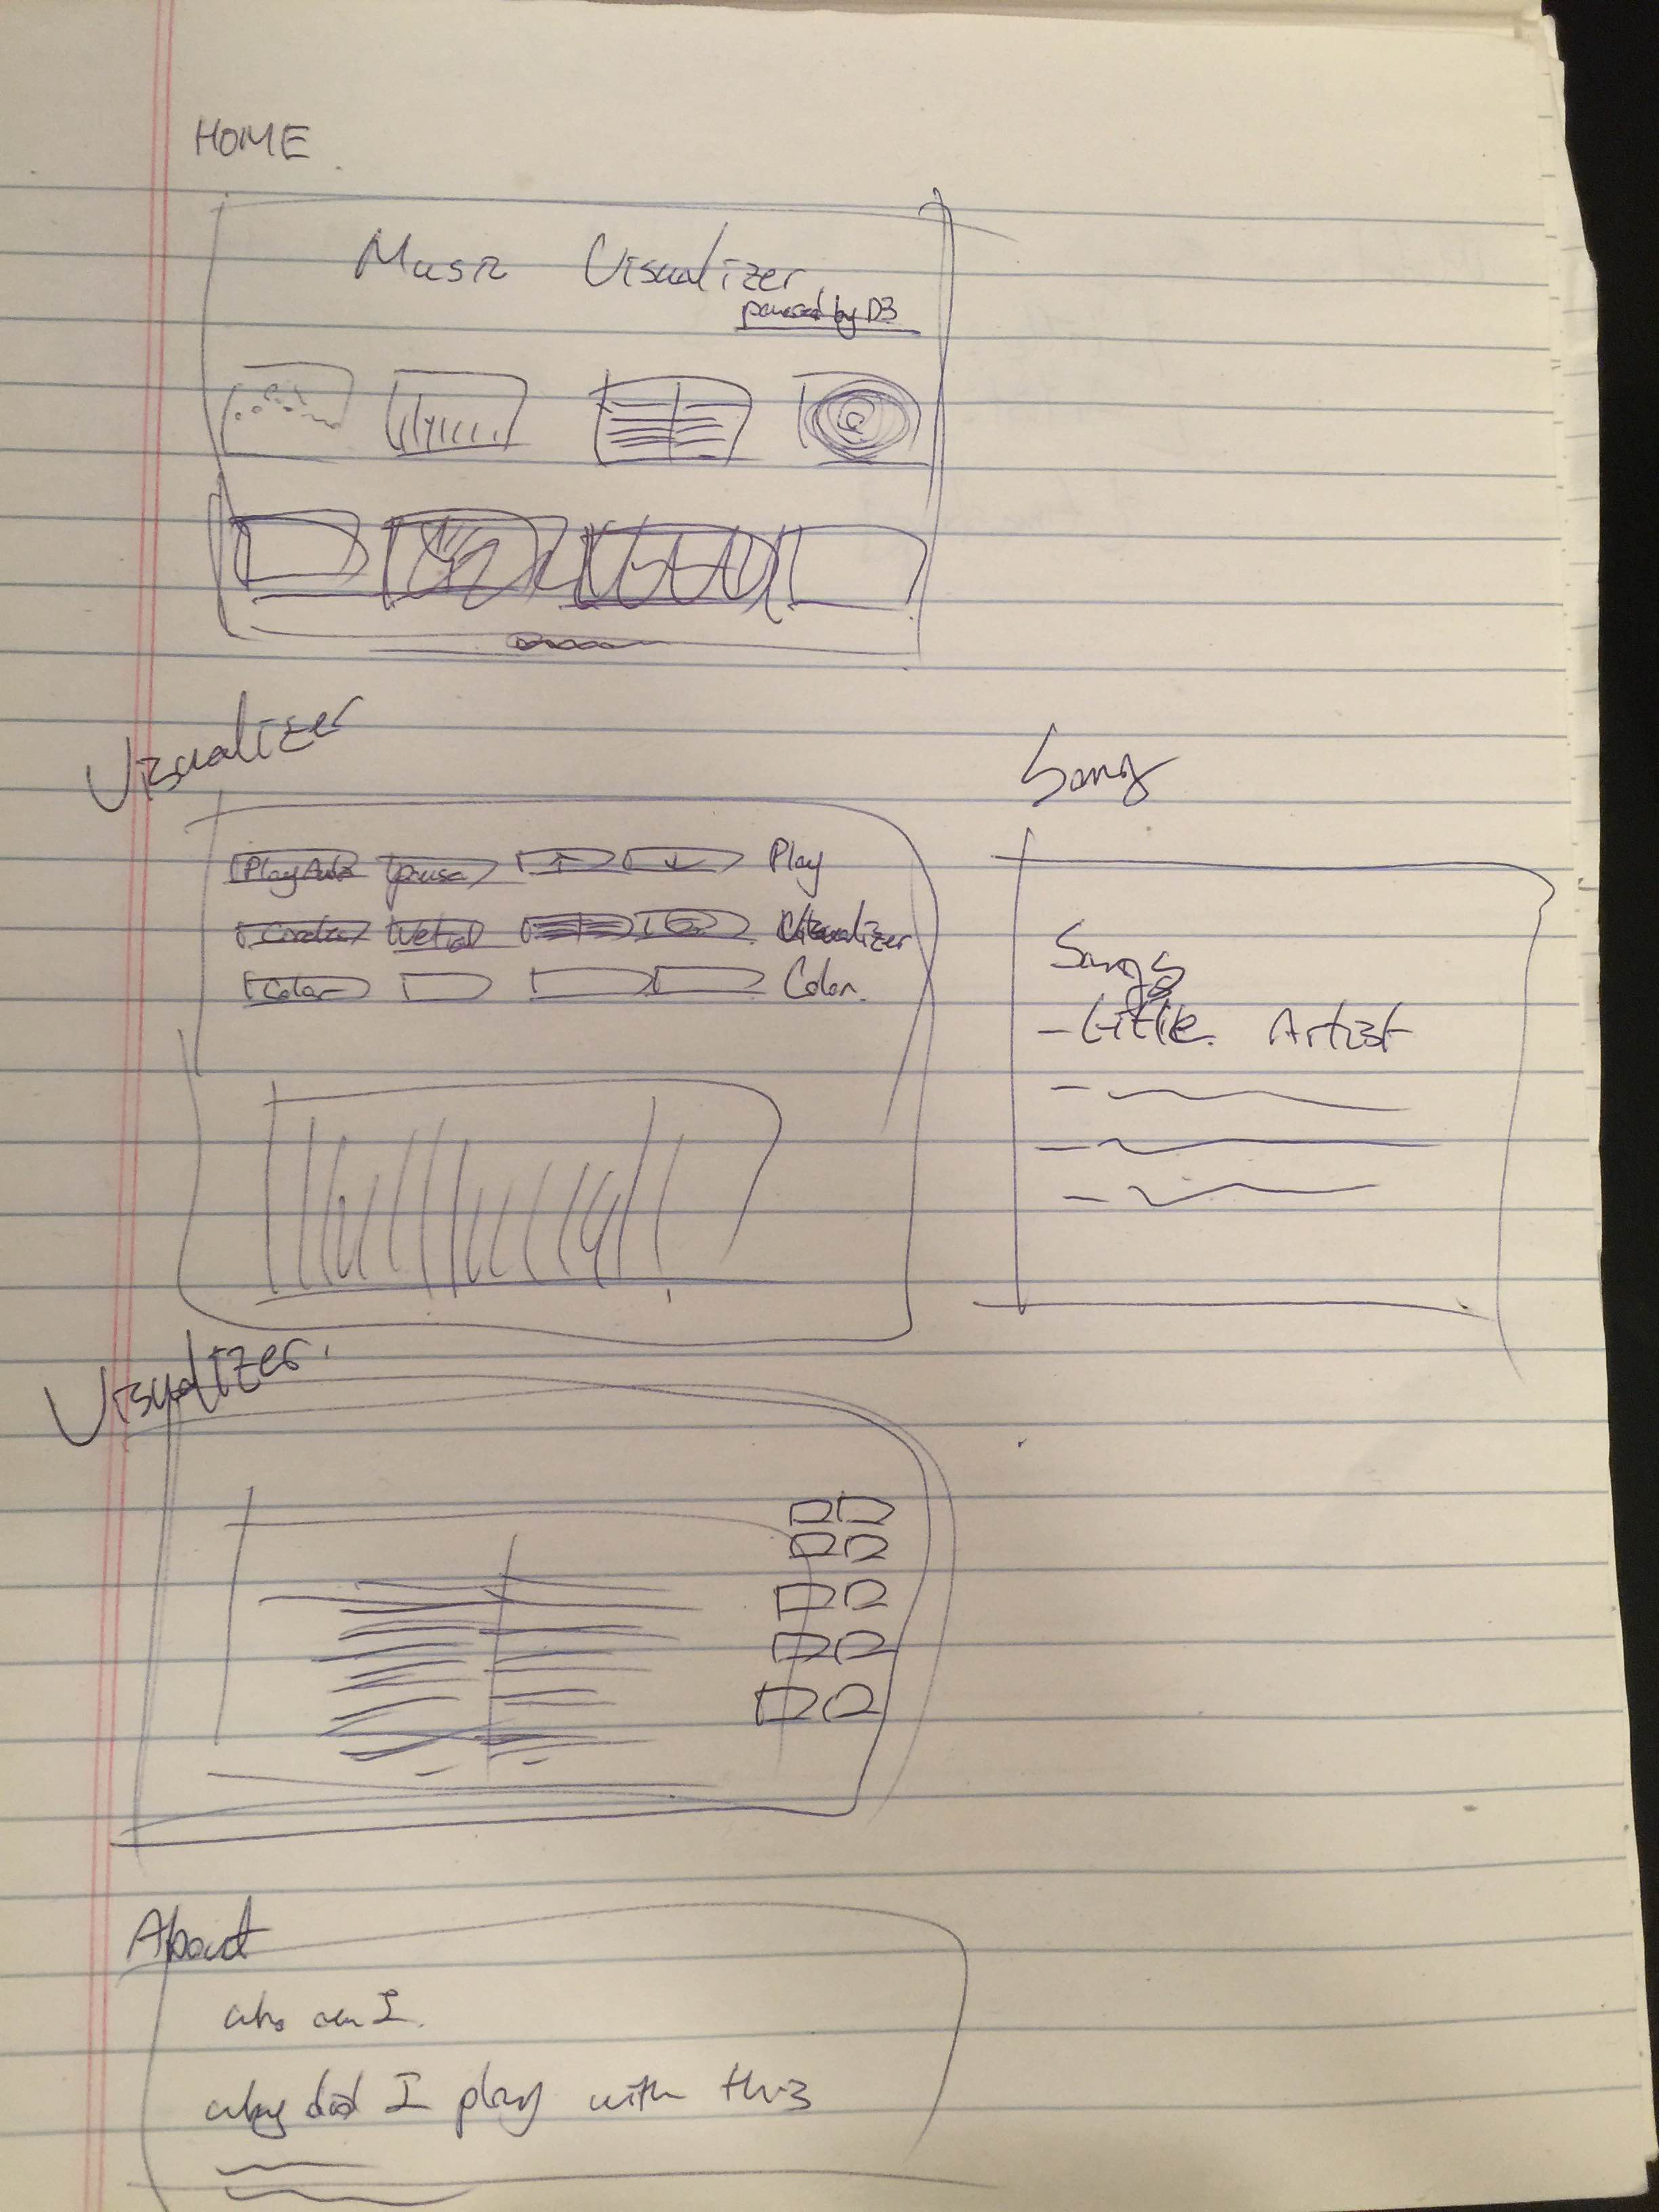 HOME
Music Visualizer
powered by D3
Visualizer
Play Audio pause ↑ ↓ Play
Visualizer
Color Color.
Song
Songs
- title. Artist
Visualizer.
About
who am I.
why did I play with this